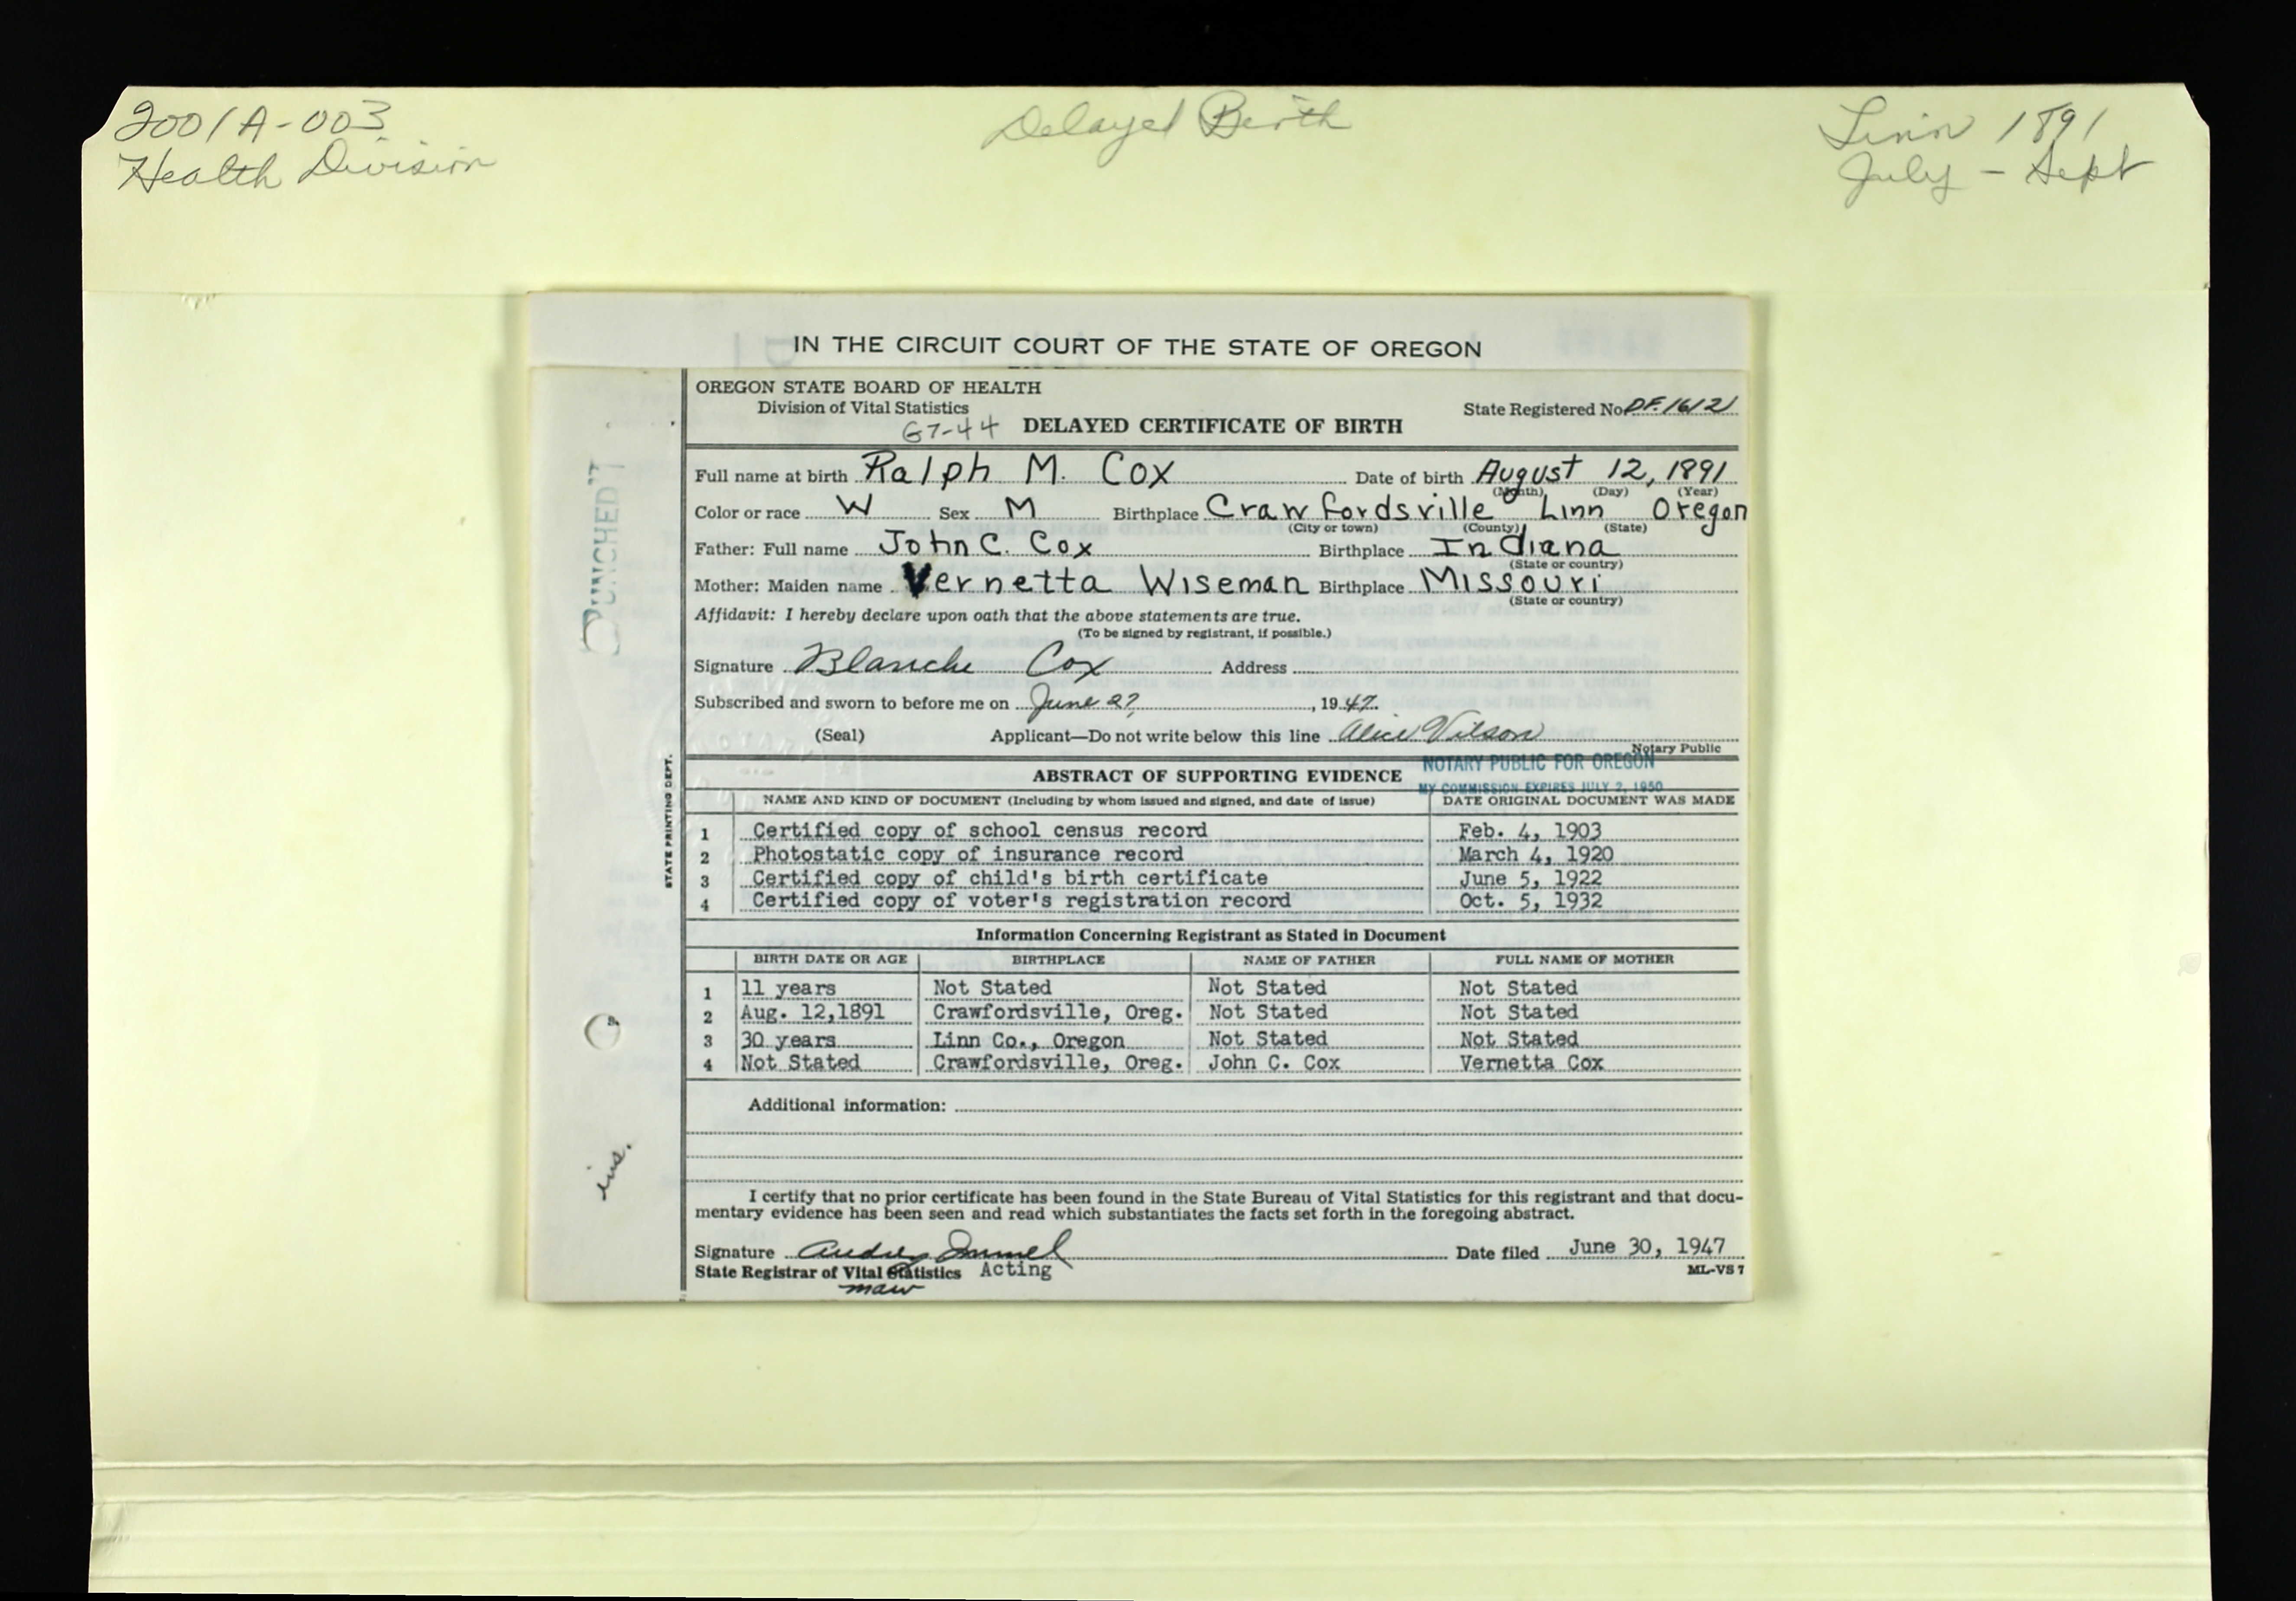 2001A-003
Health Division
Delayed Birth
Linn 1891
July - Sept
IN THE CIRCUIT COURT OF THE STATE OF OREGON
OREGON STATE BOARD OF HEALTH
Division of Vital Statistics
State Registered No. DF.1612
G7-44 DELAYED CERTIFICATE OF BIRTH
Full name at birth Ralph M. Cox Date of birth August 12, 1891
(Month) (Day) (Year)
Color or race W Sex M Birthplace Crawfordsville Linn Oregon
(City or town) (County) (State)
Father: Full name John C. Cox Birthplace Indiana
(State or country)
Mother: Maiden name Vernetta Wiseman Birthplace Missouri
(State or country)
Affidavit: I hereby declare upon oath that the above statements are true.
(To be signed by registrant, if possible.)
Signature Blanche Cox Address
Subscribed and sworn to before me on June 27, 1947.
(Seal) Applicant—Do not write below this line Alice Vilson
Notary Public
NOTARY PUBLIC FOR OREGON
MY COMMISSION EXPIRES JULY 2, 1950
ABSTRACT OF SUPPORTING EVIDENCE
NAME AND KIND OF DOCUMENT (Including by whom issued and signed, and date of issue) DATE ORIGINAL DOCUMENT WAS MADE
1 Certified copy of school census record Feb. 4, 1903
2 Photostatic copy of insurance record March 4, 1920
3 Certified copy of child's birth certificate June 5, 1922
4 Certified copy of voter's registration record Oct. 5, 1932
Information Concerning Registrant as Stated in Document
BIRTH DATE OR AGE BIRTHPLACE NAME OF FATHER FULL NAME OF MOTHER
1 11 years Not Stated Not Stated Not Stated
2 Aug. 12,1891 Crawfordsville, Oreg. Not Stated Not Stated
3 30 years Linn Co., Oregon Not Stated Not Stated
4 Not Stated Crawfordsville, Oreg. John C. Cox Vernetta Cox
Additional information:
I certify that no prior certificate has been found in the State Bureau of Vital Statistics for this registrant and that docu-
mentary evidence has been seen and read which substantiates the facts set forth in the foregoing abstract.
Signature Date filed June 30, 1947
State Registrar of Vital Statistics Acting
maw
ML-VS 7
PUNCHED
STATE PRINTING DEPT.
ins.